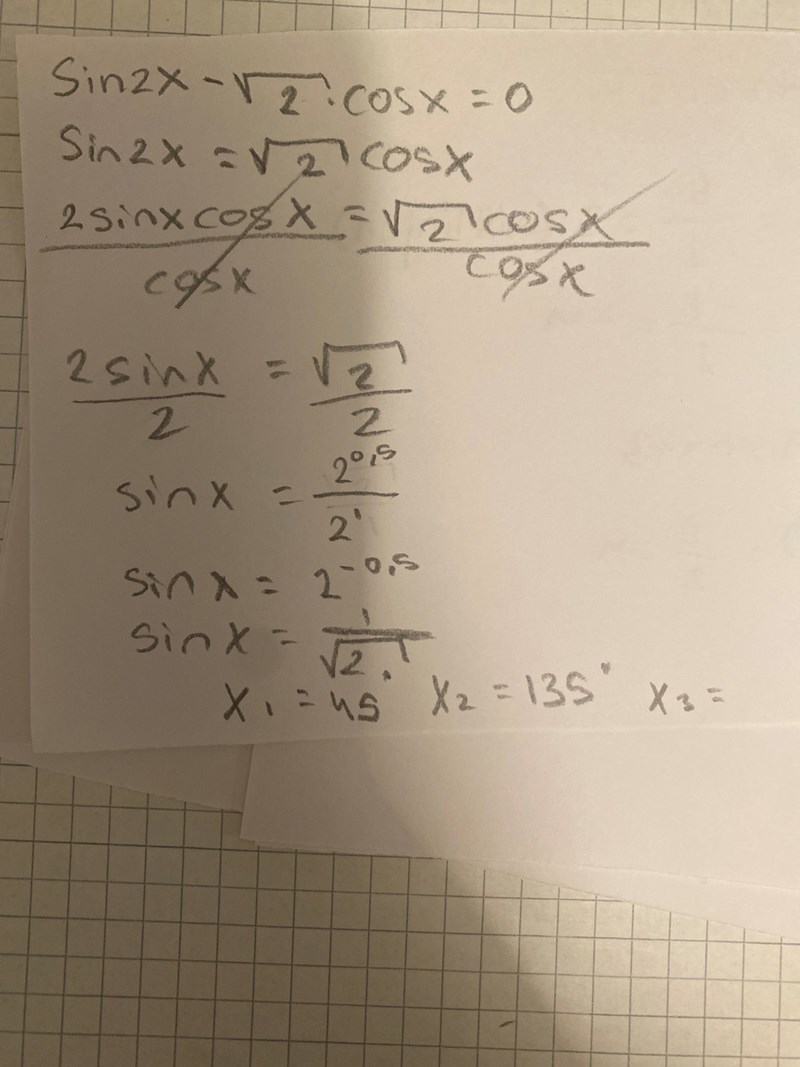 Sin2x - √2 · cosx = 0
Sin2x = √2 cosx
2sinxcosx/cosx = √2 cosx/cosx
2sinx/2 = √2/2
sinx = 2^0,5/2^1
sinx = 2^-0,5
sinx = 1/√2
x₁ = 45° x₂ = 135° x₃ =